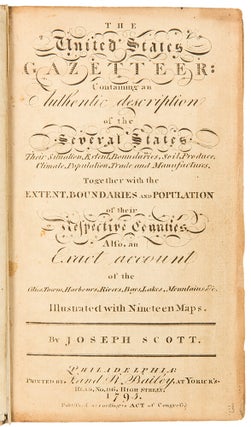 THE
United States
GAZETTEER:
Containing an
Authentic description
of the
Several States
Their Situation, Extent, Boundaries, Soil, Produce,
Climate, Population, Trade and Manufactures,
Together with the
EXTENT, BOUNDARIES AND POPULATION
of their
Respective Counties
Also, an
Exact account
of the
Cities, Towns, Harbours, Rivers, Bays, Lakes, Mountains &c.
Illustrated with Nineteen Maps.
By JOSEPH SCOTT.
PHILADELPHIA
PRINTED BY F. and R. Bailey, AT YORICK'S-
HEAD, No. 116, HIGH STREET.
1795.
Publish'd according to ACT of Congress